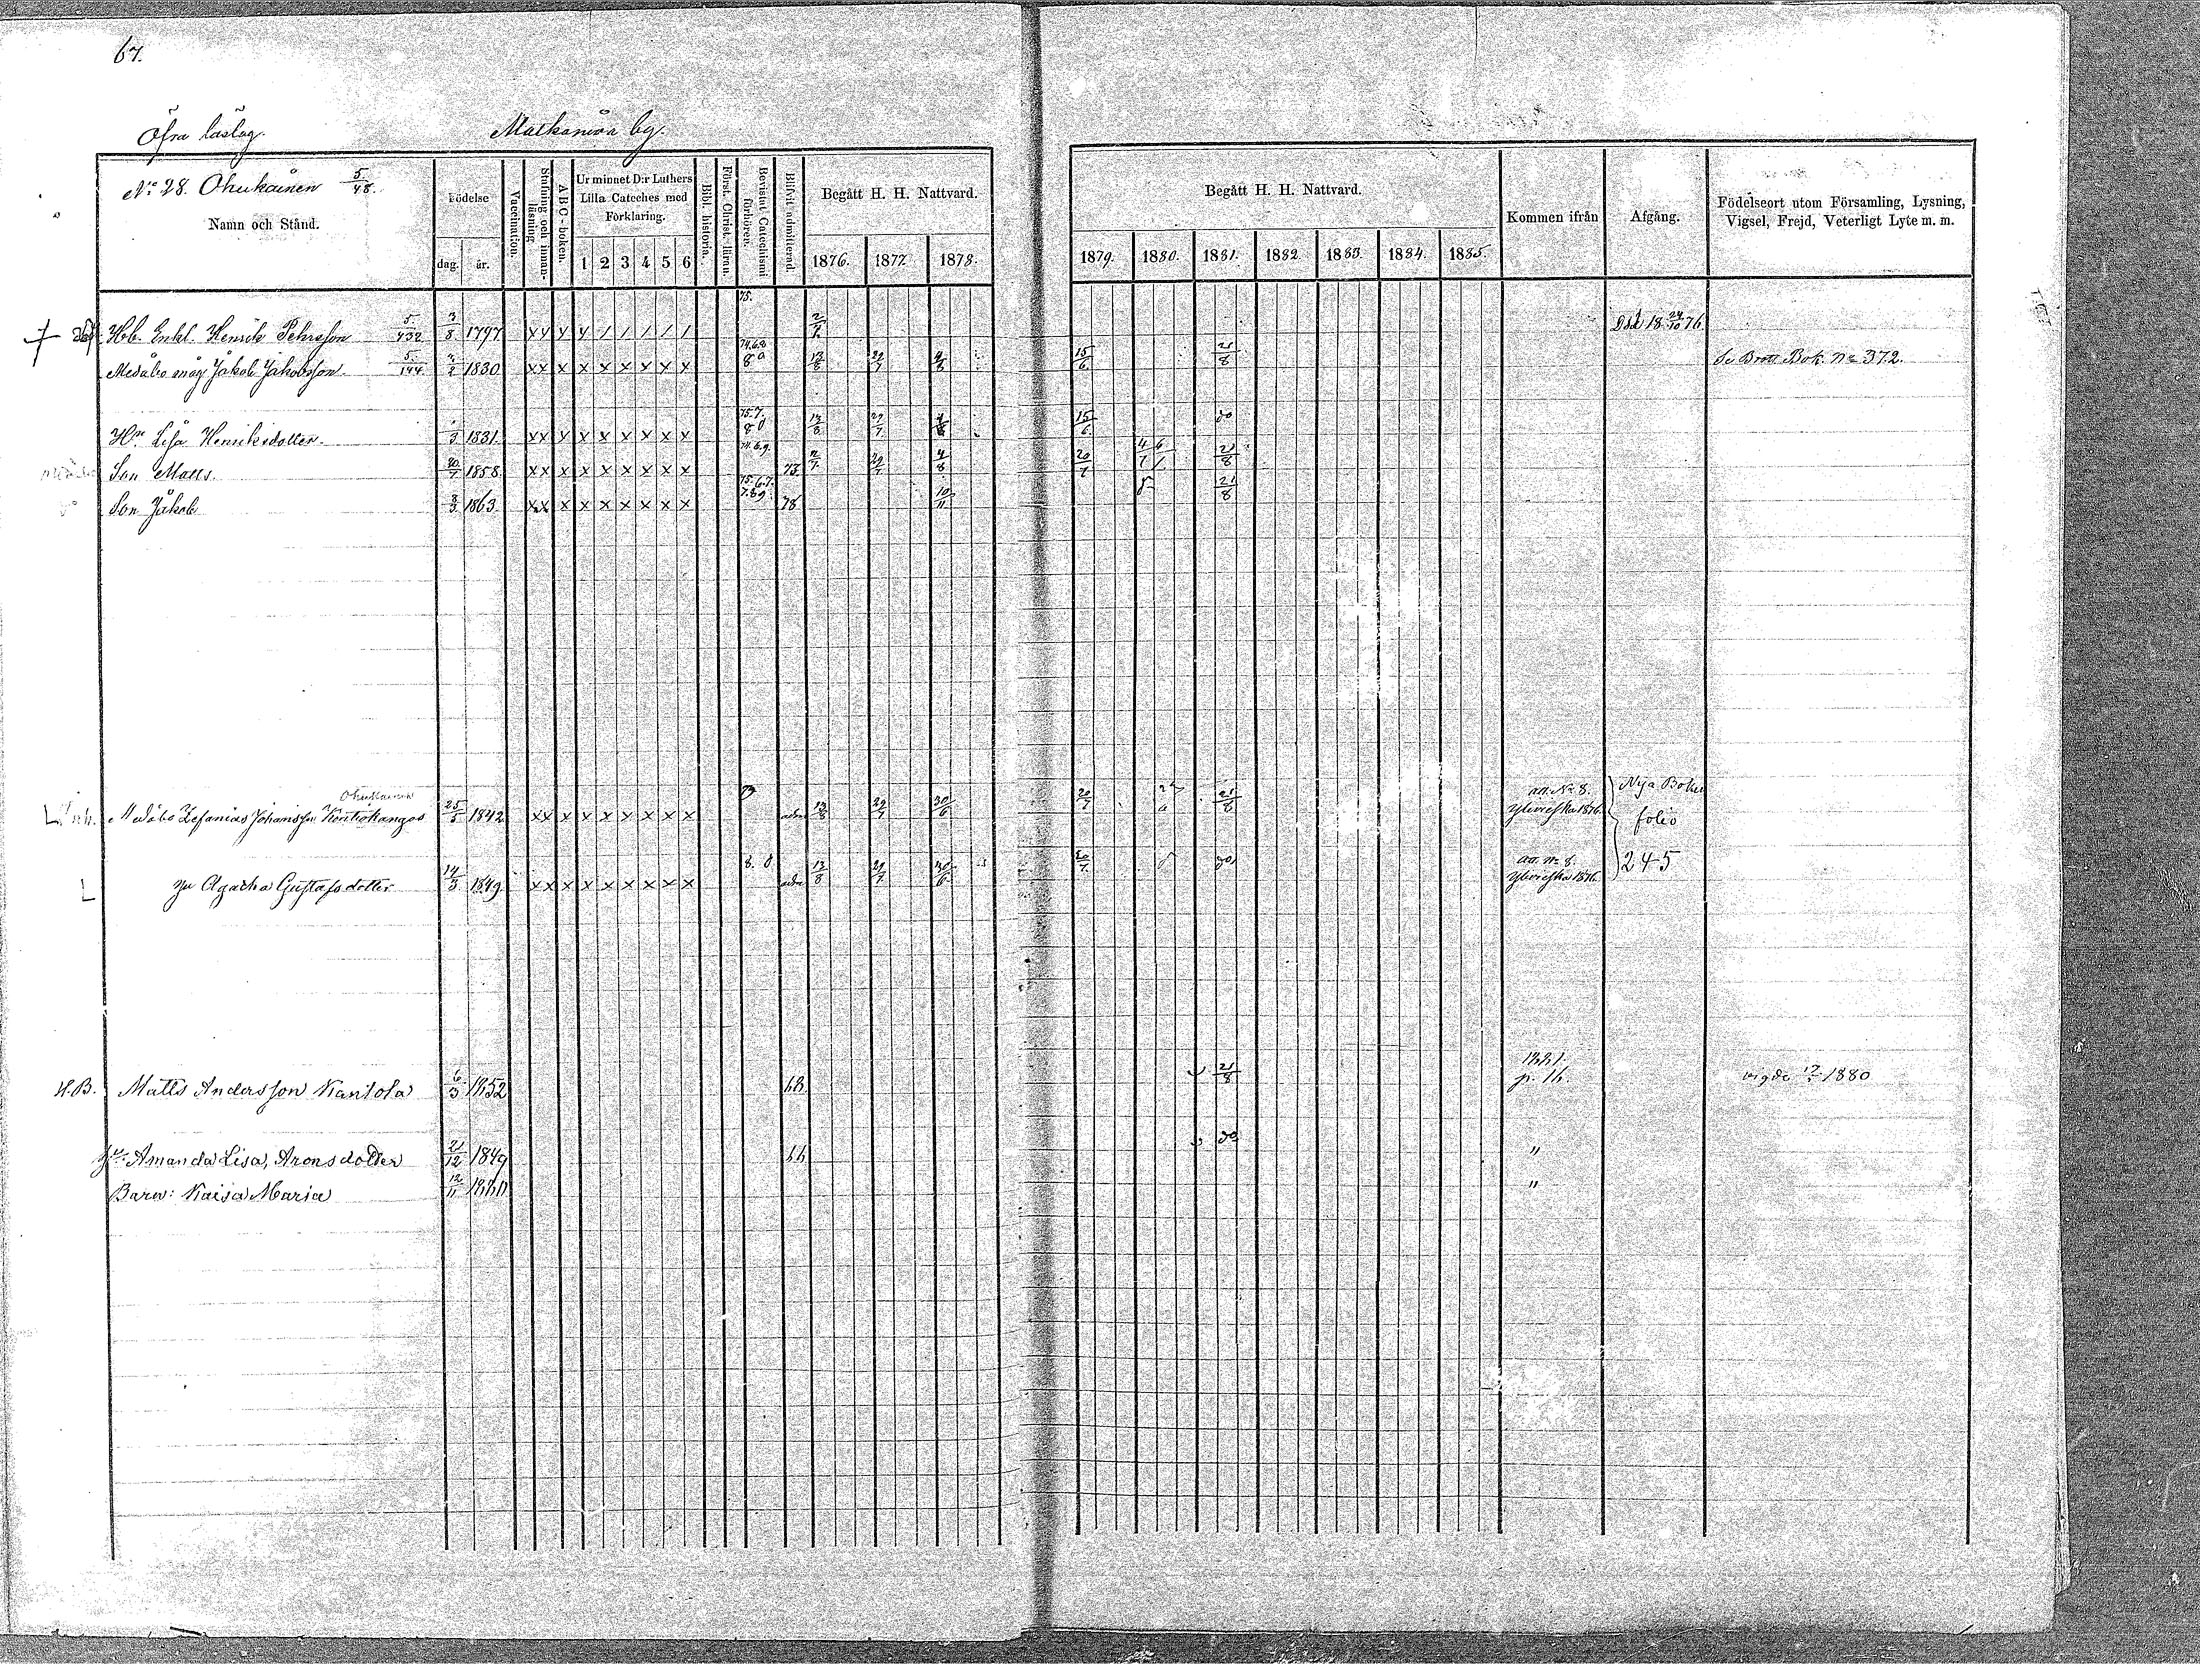 67.
Öfra läslag. Matkaniva by.
No 28. Ohukainen 5/48.
Namn och Stånd.
Födelse
dag. år.
Vaccination.
Stafning och innanläsning
ABC-boken.
Ur minnet D:r Luthers Lilla Cateches med Förklaring.
1 2 3 4 5 6
Bibl. historia.
Först. Christ. läran.
Bevistat Catechismi förhören.
Blifvit admitterad.
Begått H. H. Nattvard.
1876. 1877. 1878.
Begått H. H. Nattvard.
1879. 1880. 1881. 1882. 1883. 1884. 1885.
Kommen ifrån
Afgång.
Födelseort utom Församling, Lysning, Vigsel, Frejd, Veterligt Lyte m. m.
Hb. Enkl. Henrik Pehrsson 5/432 3/8 1797 x x x x / / / / / 75. 2/7 Död 18 24/10 76
Medåbo måg Jakob Jakobsson 5/144 2/2 1830 x x x x x x x x x 13/8 29/7 4/8 15/6 21/8 Se Brott Bok. No 372.
Hu Lisa Henriksdotter. 1831 x x x x x x x x x 75.7. 13/8 29/7 4/8 15/6 do
Son Matts. 20/7 1858 x x x x x x x x x 73 29/7 4/8 20/7 21/8
Son Jakob 3/3 1863 x x x x x x x x x 75.6.7. 78 10/11 21/8
Ohukainen
Medåbo Zefanias Johansson Kentokangas 25/5 1842 x x x x x x x x x 13/8 29/7 30/6 20/7 21/8 att. No 8. Ylivieska 1876. Nya Boken folio 245
hu Agatha Gustafsdotter 14/3 1849 x x x x x x x x x 8. 13/8 29/7 30/6 20/7 do att. no 8. Ylivieska 1876.
H.B. Matts Andersson Kantola 6/3 1852 68 21/8 1881. p. 16. vigde 1880
hu Amanda Lisa Aronsdotter 21/12 1849 66 do "
Barn: Kaisa Maria 12/11 1880 "